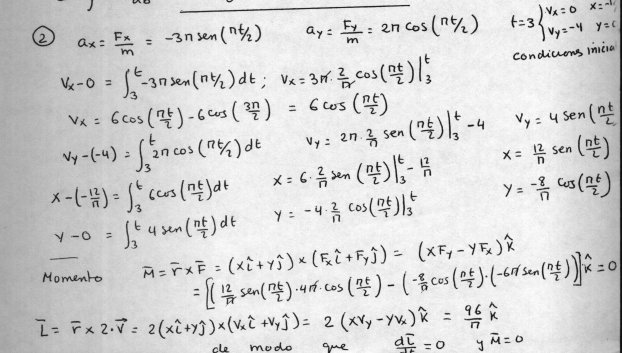 ② ax = Fx/m = -3π sen(πt/2) ay = Fy/m = 2π cos(πt/2) t=3 { Vx=0 x=
Vy=-4 y=
condiciones inicia
Vx-0 = ∫₃ᵗ -3π sen(πt/2) dt ; Vx = 3π·2/π cos(πt/2)|₃ᵗ
Vx = 6 cos(πt/2) - 6 cos(3π/2) = 6 cos(πt/2)
Vy-(-4) = ∫₃ᵗ 2π cos(πt/2) dt Vy = 2π·2/π sen(πt/2)|₃ᵗ -4 Vy = 4 sen(πt/2
x-(-12/π) = ∫₃ᵗ 6 cos(πt/2) dt x = 6·2/π sen(πt/2)|₃ᵗ - 12/π x = 12/π sen(πt/2)
y-0 = ∫₃ᵗ 4 sen(πt/2) dt y = -4·2/π cos(πt/2)|₃ᵗ y = -8/π cos(πt/2)
Momento M̄ = r̄ × F̄ = (xî+yĵ) × (Fxî+Fyĵ) = (xFy - yFx) k̂
= [(12/π sen(πt/2)·4π·cos(πt/2) - (-8/π cos(πt/2)·(-6π sen(πt/2))] k̂ = 0
L̄ = r̄ × 2·v̄ = 2(xî+yĵ) × (Vxî+Vyĵ) = 2(xVy - yVx) k̂ = 96/π k̂
de modo que dL̄/dt = 0 y M̄=0